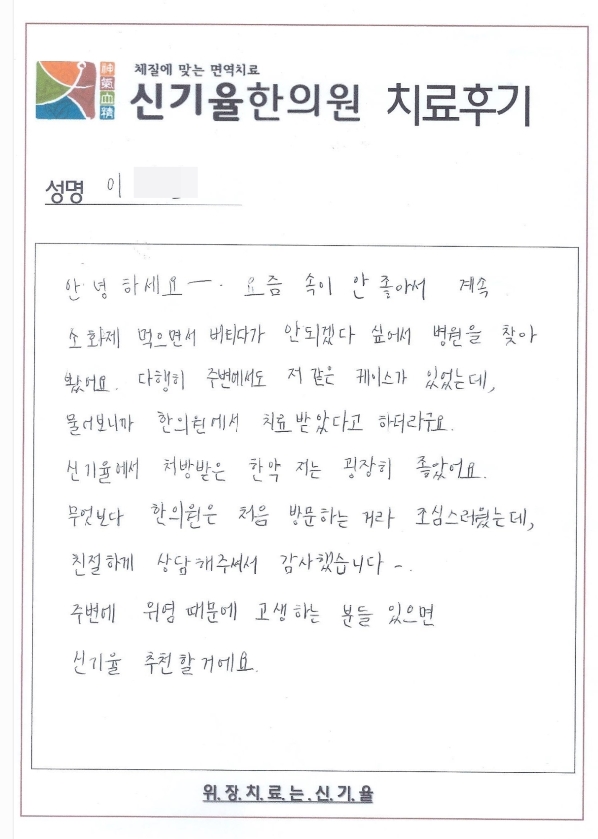 체질에 맞는 면역치료
神氣血精
신기율한의원 치료후기
성명 이
안녕하세요~. 요즘 속이 안 좋아서 계속
소화제 먹으면서 버티다가 안되겠다 싶어서 병원을 찾아
봤어요. 다행히 주변에서도 저 같은 케이스가 있었는데,
물어보니까 한의원에서 치료받았다고 하더라구요.
신기율에서 처방받은 한약 저는 굉장히 좋았어요.
무엇보다 한의원은 처음 방문하는 거라 조심스러웠는데,
친절하게 상담해주셔서 감사했습니다~.
주변에 위염 때문에 고생하는 분들 있으면
신기율 추천할거에요.
위.장.치.료.는.신.기.율